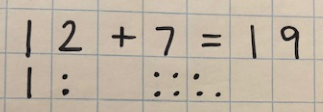 12 + 7 = 19
1 : ::: .